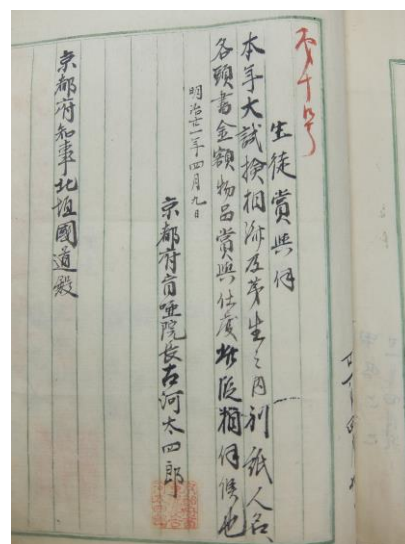 第十八号
生徒賞与伺
本年大試験相済及第生之内別紙人名
各頭書金額物品賞与仕度此段相伺候也
明治廿一年四月九日
京都府盲唖院長古河太四郎
京都府知事北垣國道殿